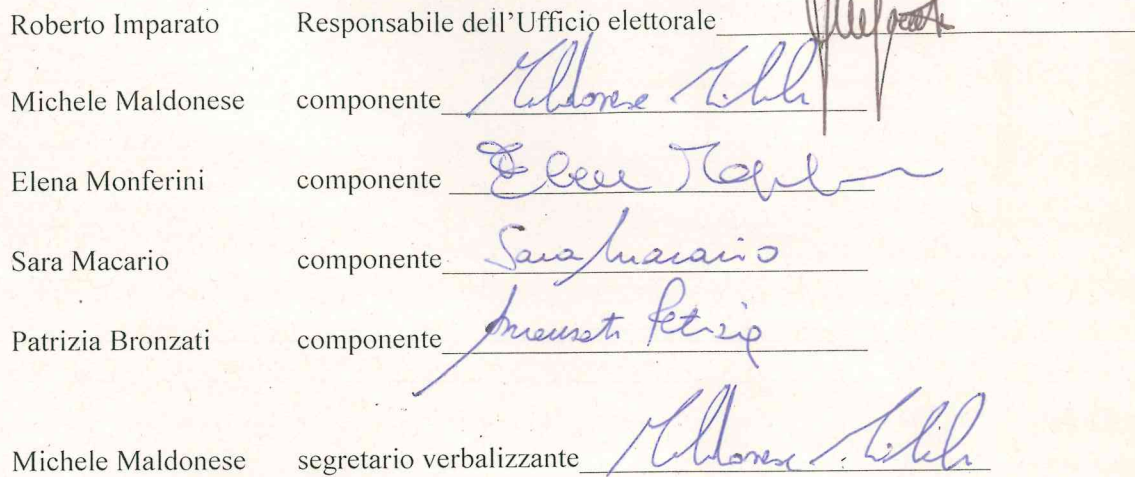 Roberto Imparato Responsabile dell'Ufficio elettorale
Michele Maldonese componente Maldonese Michele
Elena Monferini componente Elena
Sara Macario componente Sara Macario
Patrizia Bronzati componente Patrizia
Michele Maldonese segretario verbalizzante Maldonese Michele